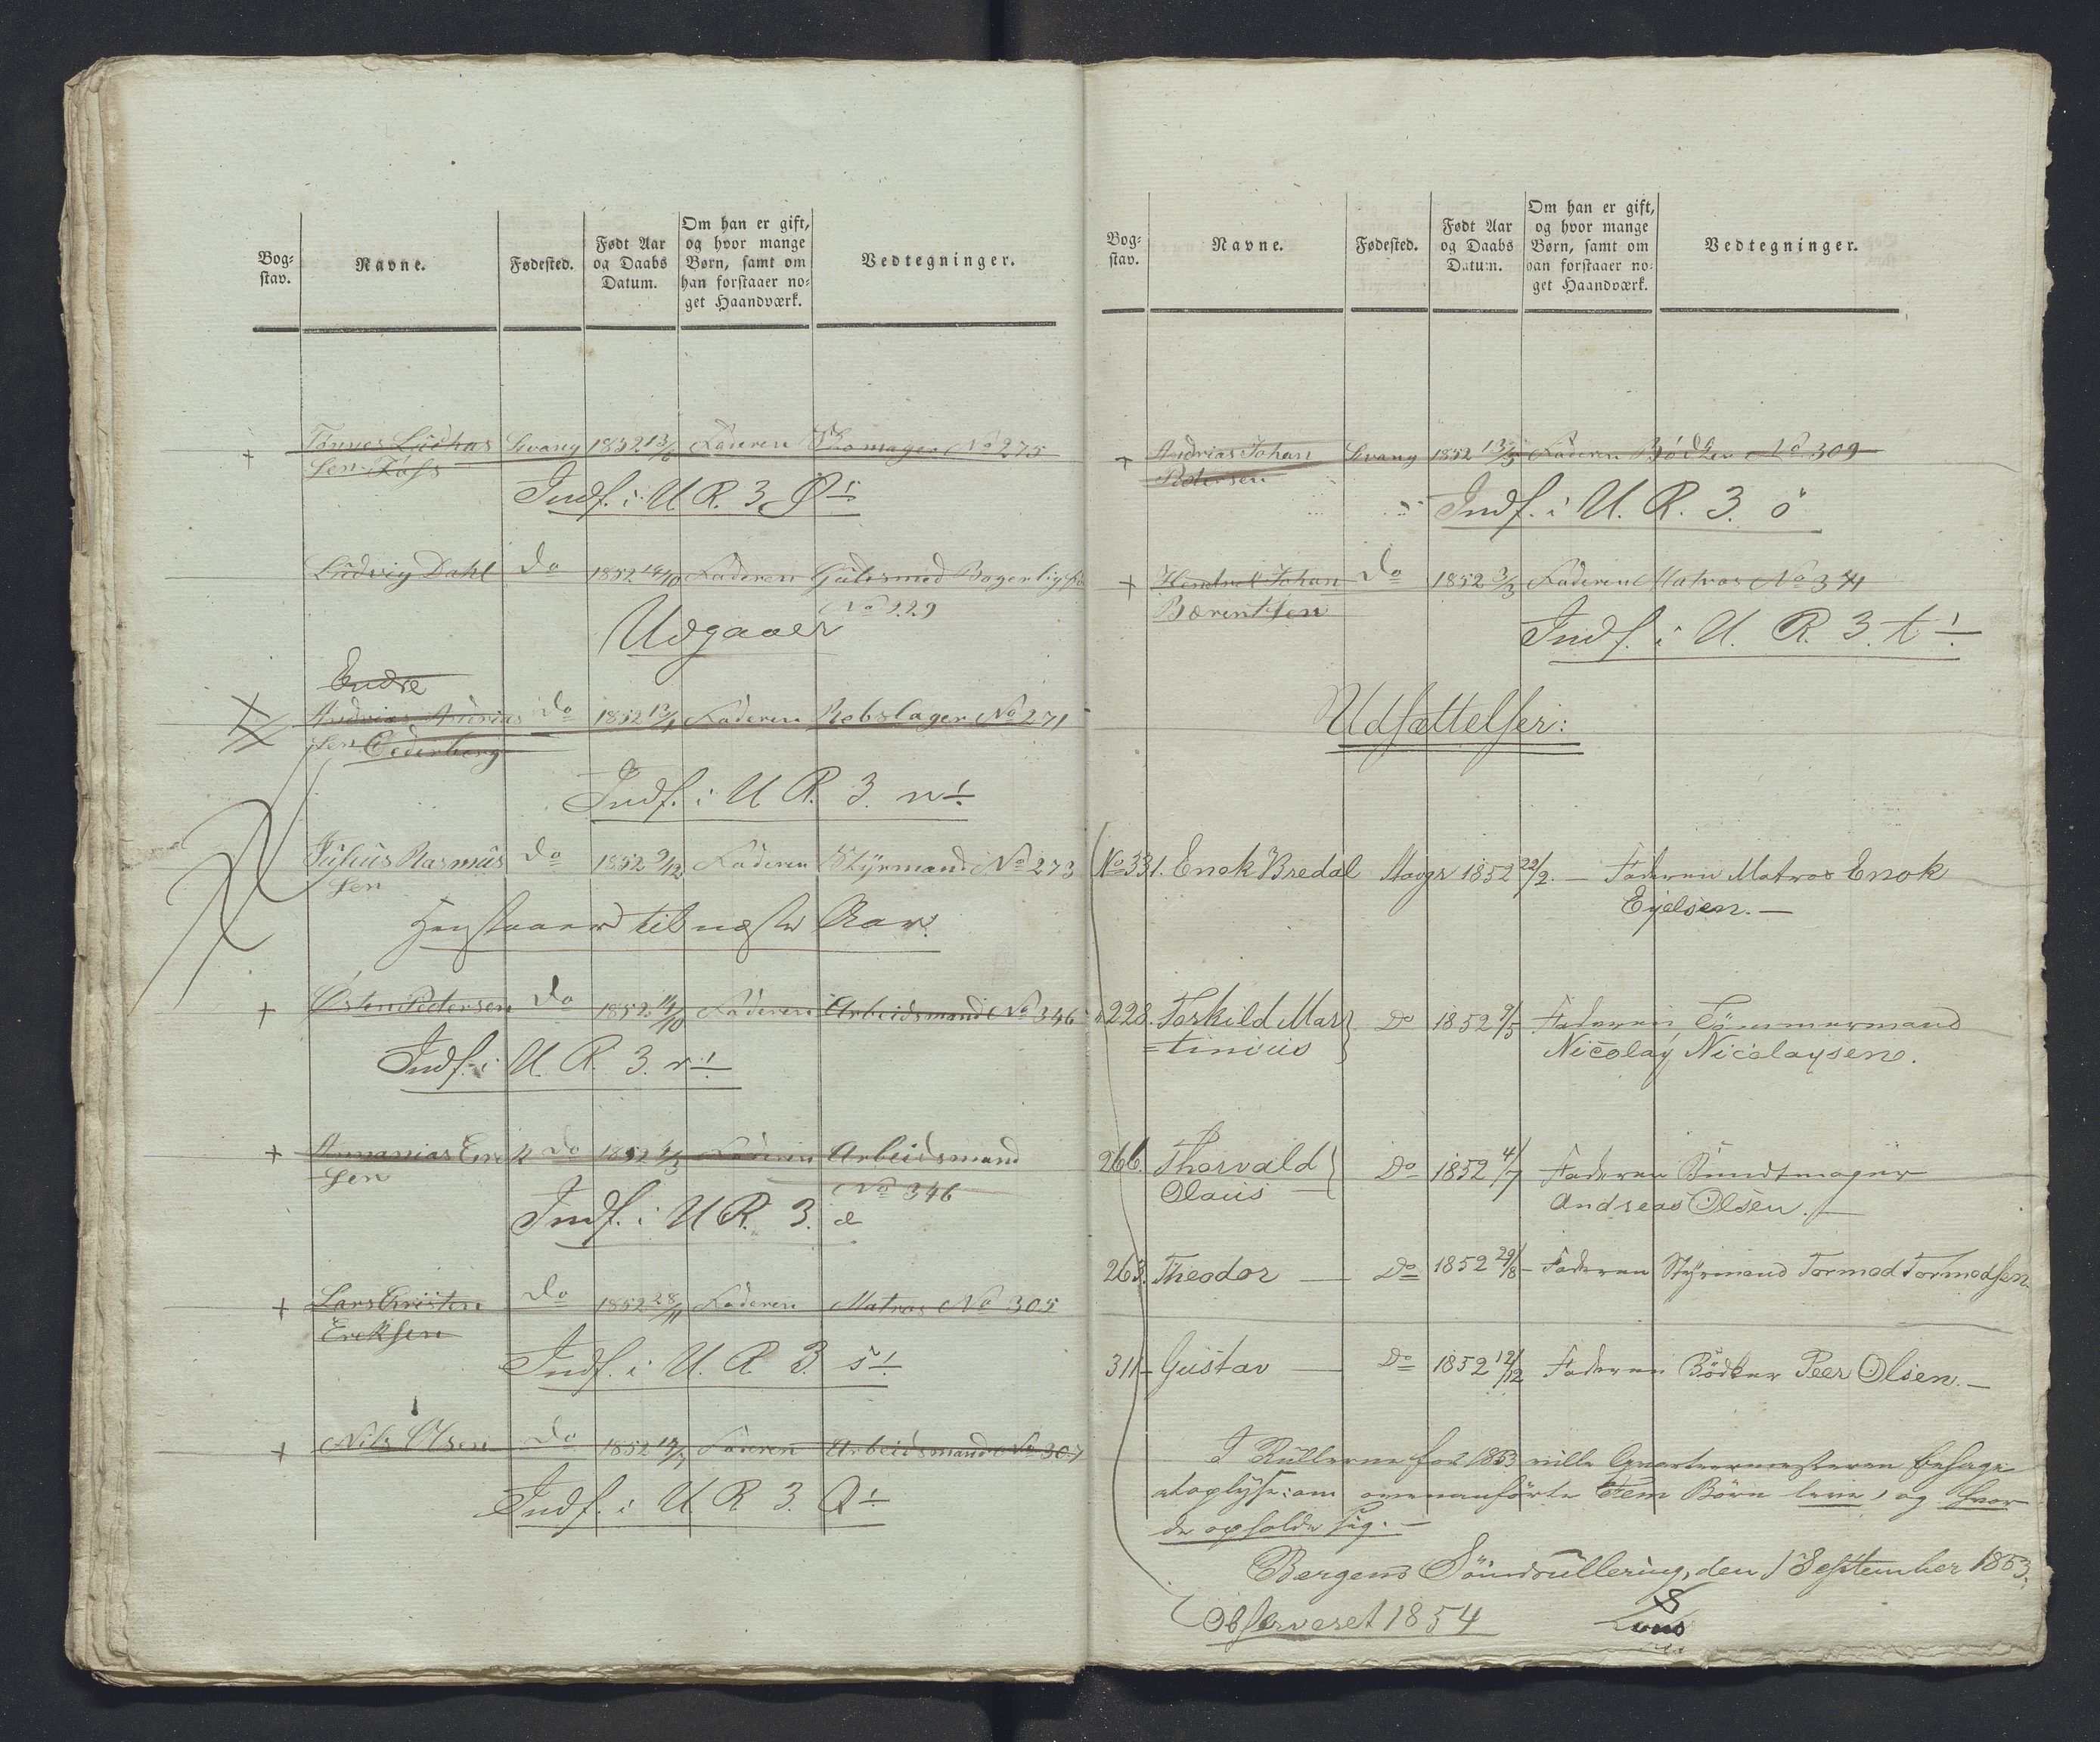 Bog-
stav.
Navne.
Fødested.
Født Aar
og Daabs
Datum.
Om han er gift,
og hvor mange
Børn, samt om
han forstaaer no-
get Haandværk.
Vedtegninger.
+ Tønnes Ludhas Svang 1852 13/6 Faderen Skomager No 275
sen Foss
Indf. i U R. 3 Ø 1
Ludvig Dahl do 1852 14/10 Faderen Guldsmed
No 229
Udgaaer
Endre
Andrias do 1852 13/9 Faderen Rebslager No 271
sen Cederberg
Indf. i U R. 3. n 1
Julius Rasmus do 1852 9/12 Faderen Styrmand No 273
sen
Henstaaer til næste Aar.
+ Østen Pedersen do 1852 14/10 Faderen Arbeidsmand No 346
Indf. i U. R. 3. r 1
+ Annanias Erik do 1852 4/3 Faderen Arbeidsmand
sen No 346
Indf. i U R. 3. æ
+ Lars Cristen do 1852 28/11 Faderen Matros No 305
Eriksen
Indf. i U. R. 3 s 1
+ Nils Olsen do 1852 14/7 Faderen Arbeidsmand No 307
Indf. i U. R 3. Q 1
Bog-
stav.
Navne.
Fødested.
Født Aar
og Daabs
Datum.
Om han er gift,
og hvor mange
Børn, samt om
han forstaaer no-
get Haandværk.
Vedtegninger.
+ Andrias Johan Svang 1852 13/5 Faderen Bödker No 309
Pedersen
Indf. i U. R. 3. ö
+ Hendrik Johan do 1852 3/3 Faderen Matros No 341
Bærentsen
Indf. i U. R. 3. t 1
Udsættelser:
No 331. Enok Bredal Stavgr 1852 22/2. — Faderen Matros Enok
Eyelsen. —
" 228. Torkild Mar Do 1852 9/5 Faderen, Tömmermand
=tinius Nicolay Nicolaysen.
266. Thorvald Do 1852 4/7 Faderen Bundtmager
Olaus — Andreas Olsen. —
263. Theodor — Do 1852 29/8 — Faderen Styrmand Tormod Tormodsen
311 — Gustav — Do 1852 12/12 Faderen Bödker Peer Olsen. —
I Rullerne for 1853 ville Qvarteermesteren behage
at oplyse: om ovenanførte Fem Börn leve, og hvor
de opholde sig. —
Bergens Söindrullering, den 1 September 1853.
Observeret 1854